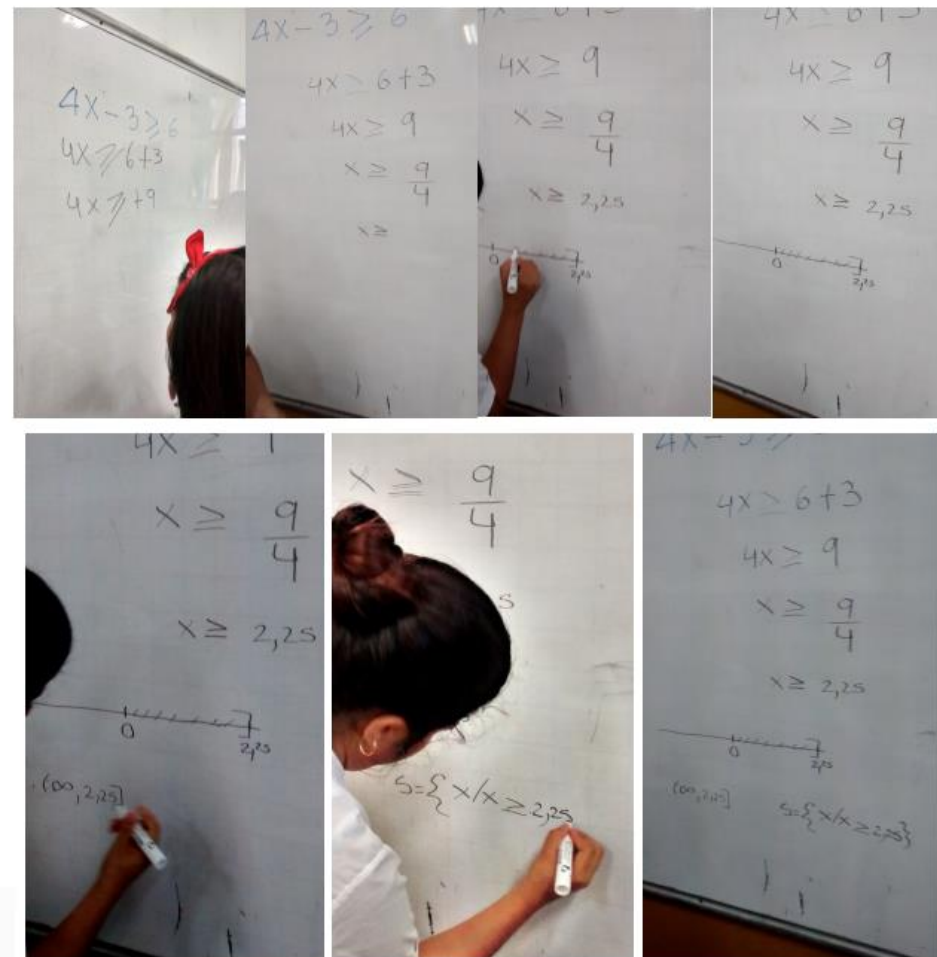 4X-3≥6
4X≥6+3
4X≥+9
4X-3≥6
4X≥6+3
4X≥9
X≥9/4
X≥
4X≥9
X≥9/4
X≥2,25
0
2,25
4X≥9
X≥9/4
X≥2,25
0
2,25
X≥9/4
X≥2,25
0
2,25
(∞,2,25]
X≥9/4
S={X/X≥2,25
4X≥6+3
4X≥9
X≥9/4
X≥2,25
0
2,25
(∞,2,25]
S={X/X≥2,25}